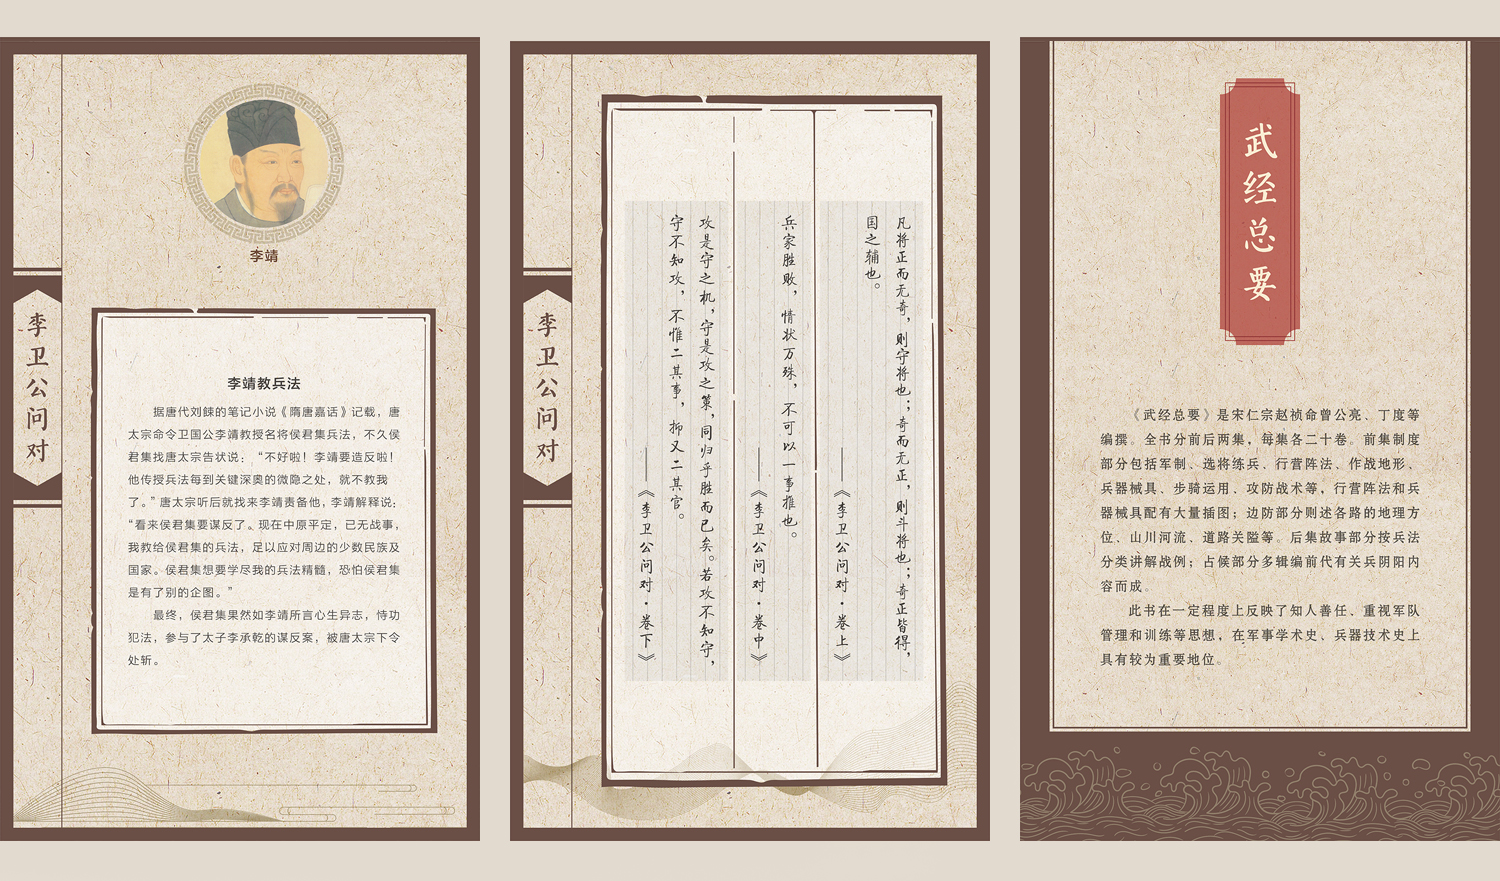 李卫公问对
李靖
李靖教兵法
据唐代刘餗的笔记小说《隋唐嘉话》记载，唐
太宗命令卫国公李靖教授名将侯君集兵法，不久侯
君集找唐太宗告状说：“不好啦！李靖要造反啦！
他传授兵法每到关键深奥的微隐之处，就不教我
了。”唐太宗听后就找来李靖责备他，李靖解释说：
“看来侯君集要谋反了。现在中原平定，已无战事，
我教给侯君集的兵法，足以应对周边的少数民族及
国家。侯君集想要学尽我的兵法精髓，恐怕侯君集
是有了别的企图。”
最终，侯君集果然如李靖所言心生异志，恃功
犯法，参与了太子李承乾的谋反案，被唐太宗下令
处斩。
李卫公问对
凡将正而无奇，则守将也；奇而无正，则斗将也；奇正皆得，
国之辅也。
——《李卫公问对·卷上》
兵家胜败，情状万殊，不可以一事推也。
——《李卫公问对·卷中》
攻是守之机，守是攻之策，同归乎胜而已矣。若攻不知守，
守不知攻，不惟二其事，抑又二其官。
——《李卫公问对·卷下》
武经总要
《武经总要》是宋仁宗赵祯命曾公亮、丁度等
编撰。全书分前后两集，每集各二十卷。前集制度
部分包括军制、选将练兵、行营阵法、作战地形、
兵器械具、步骑运用、攻防战术等，行营阵法和兵
器械具配有大量插图；边防部分则述各路的地理方
位、山川河流、道路关隘等。后集故事部分按兵法
分类讲解战例；占候部分多辑编前代有关兵阴阳内
容而成。
此书在一定程度上反映了知人善任、重视军队
管理和训练等思想，在军事学术史、兵器技术史上
具有较为重要地位。